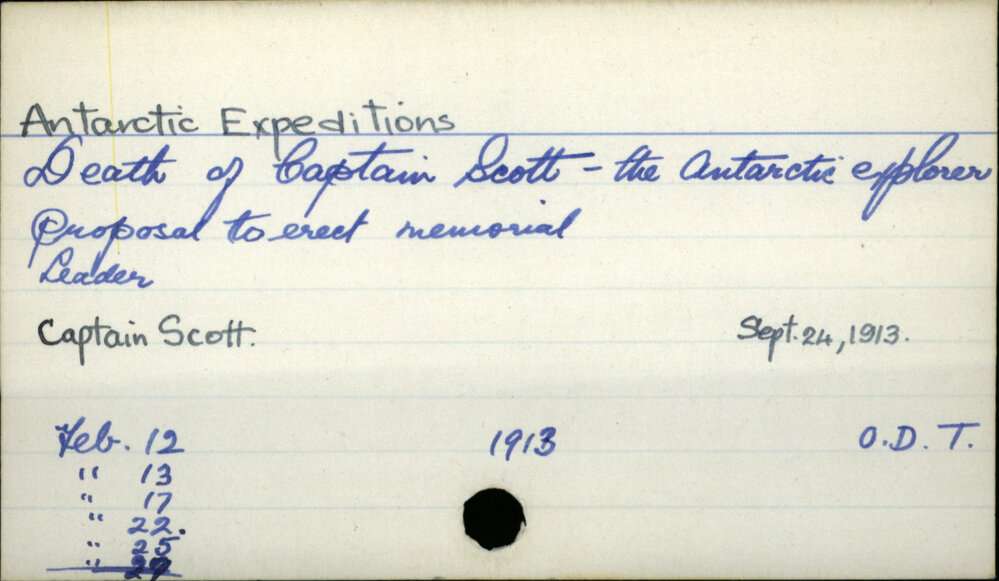 Antarctic Expeditions
Death of Captain Scott - the Antarctic explorer
Proposal to erect memorial
Leader
Captain Scott. Sept. 24, 1913.
Feb. 12 1913 O.D.T.
" 13
" 17
" 22.
" 25
"